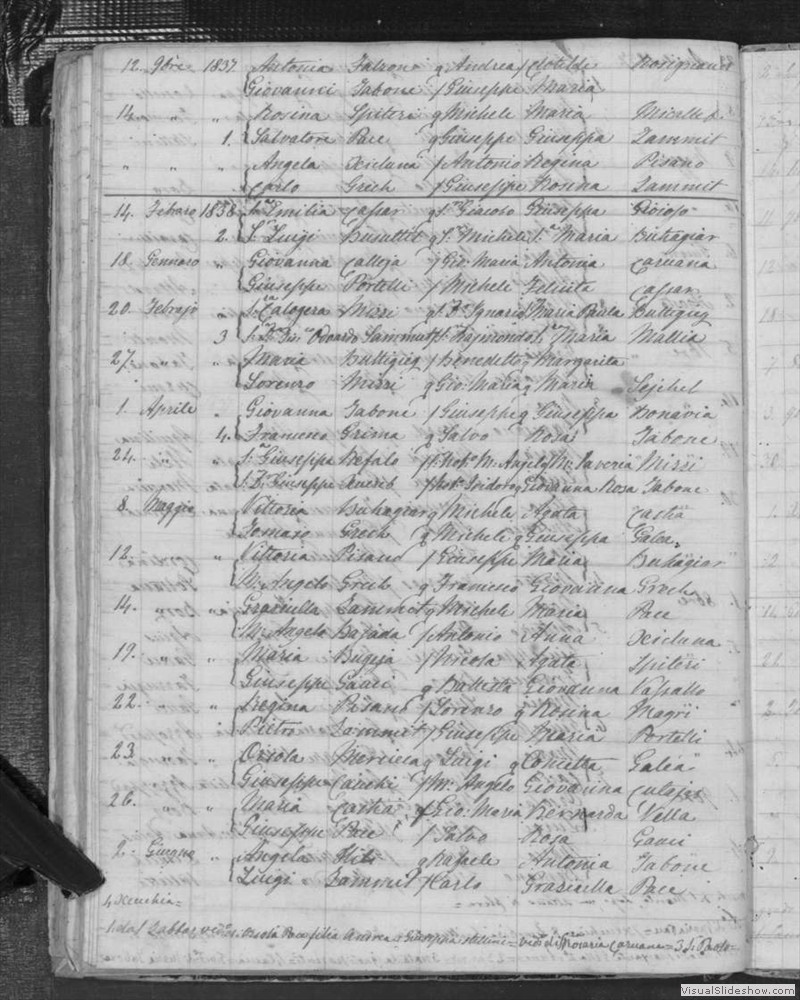 12. 9bre 1837 Antonia Falzono q Andrea f Clotilde Rosignaud
Giovanni Tabone f Giuseppe Maria
14. " " Rosina Spiteri q Michele Maria Micallef
1. Salvatore Pace q Giuseppe Giuseppa Zammit
" " " Angela Xicluna f Antonio Regina Pisano
Carlo Grech f Giuseppe Rosina Zammit
14. Febraro 1838 Emilia Cassar Giacobo Giuseppa Gioioso
2. Luigi Busuttil q Michele Maria Buhagiar
18. Gennaro " Giovanna Calleja f Gio Maria Antonia Caruana
Giuseppe Portelli f Michele Felicita Cassar
20. Febrajo " Calogera Mizzi Ignazio Maria Paula Buttigieg
3 Odoardo Sammut Raimondo Maria Mallia
27. " Maria Buttigieg f Benedetto q Margarita
Lorenzo Mizzi q Gio Maria q Maria Sejchel
1. Aprile " Giovanna Tabone f Giuseppe q Giuseppa Bonavia
4. Francesco Grima q Salvo Rosa Tabone
24. Giuseppa Refalo M. Angelo M. Saveria Mizzi
Giuseppe Isidoro q Giovanna Rosa Tabone
8. Maggio Vittoria Buhagiar q Michele Agata Castà
Tomaso Grech q Michele q Giuseppa Galea
12. " Vittoria Pisano f Giuseppe Maria Buhagiar
M. Angelo Grech q Francesco Giovanna Grech
14. " Graziella Zammit q Michele Maria Pace
M. Angelo Bajada f Antonio Anna Xicluna
19. " Maria Bugeja f Nicola Agata Spiteri
Giuseppe Gauci q Battista Giovanna Vassallo
22. " Regina Pisano f Lorenzo q Rosina Magri
Pietro Zammit f Giuseppe Maria Portelli
23 Orsola Mercieca q Luigi q Concetta Galea
Giuseppe Cauchi f M. Angelo Giovanna
26. " Maria Castà f Gio. Maria Bernarda Vella
Giuseppe Pace f Salvo Rosa Gauci
2. Giugno " Angela Hili q Rafaele Antonia Tabone
Luigi Zammit f Carlo Graziella Pace
4 Xeuchia =
1. dal Zabbar, Pace filia Andrea e Giuseppa Rosaria Caruana = 3 S. Paolo =
VisualSlideshow.com